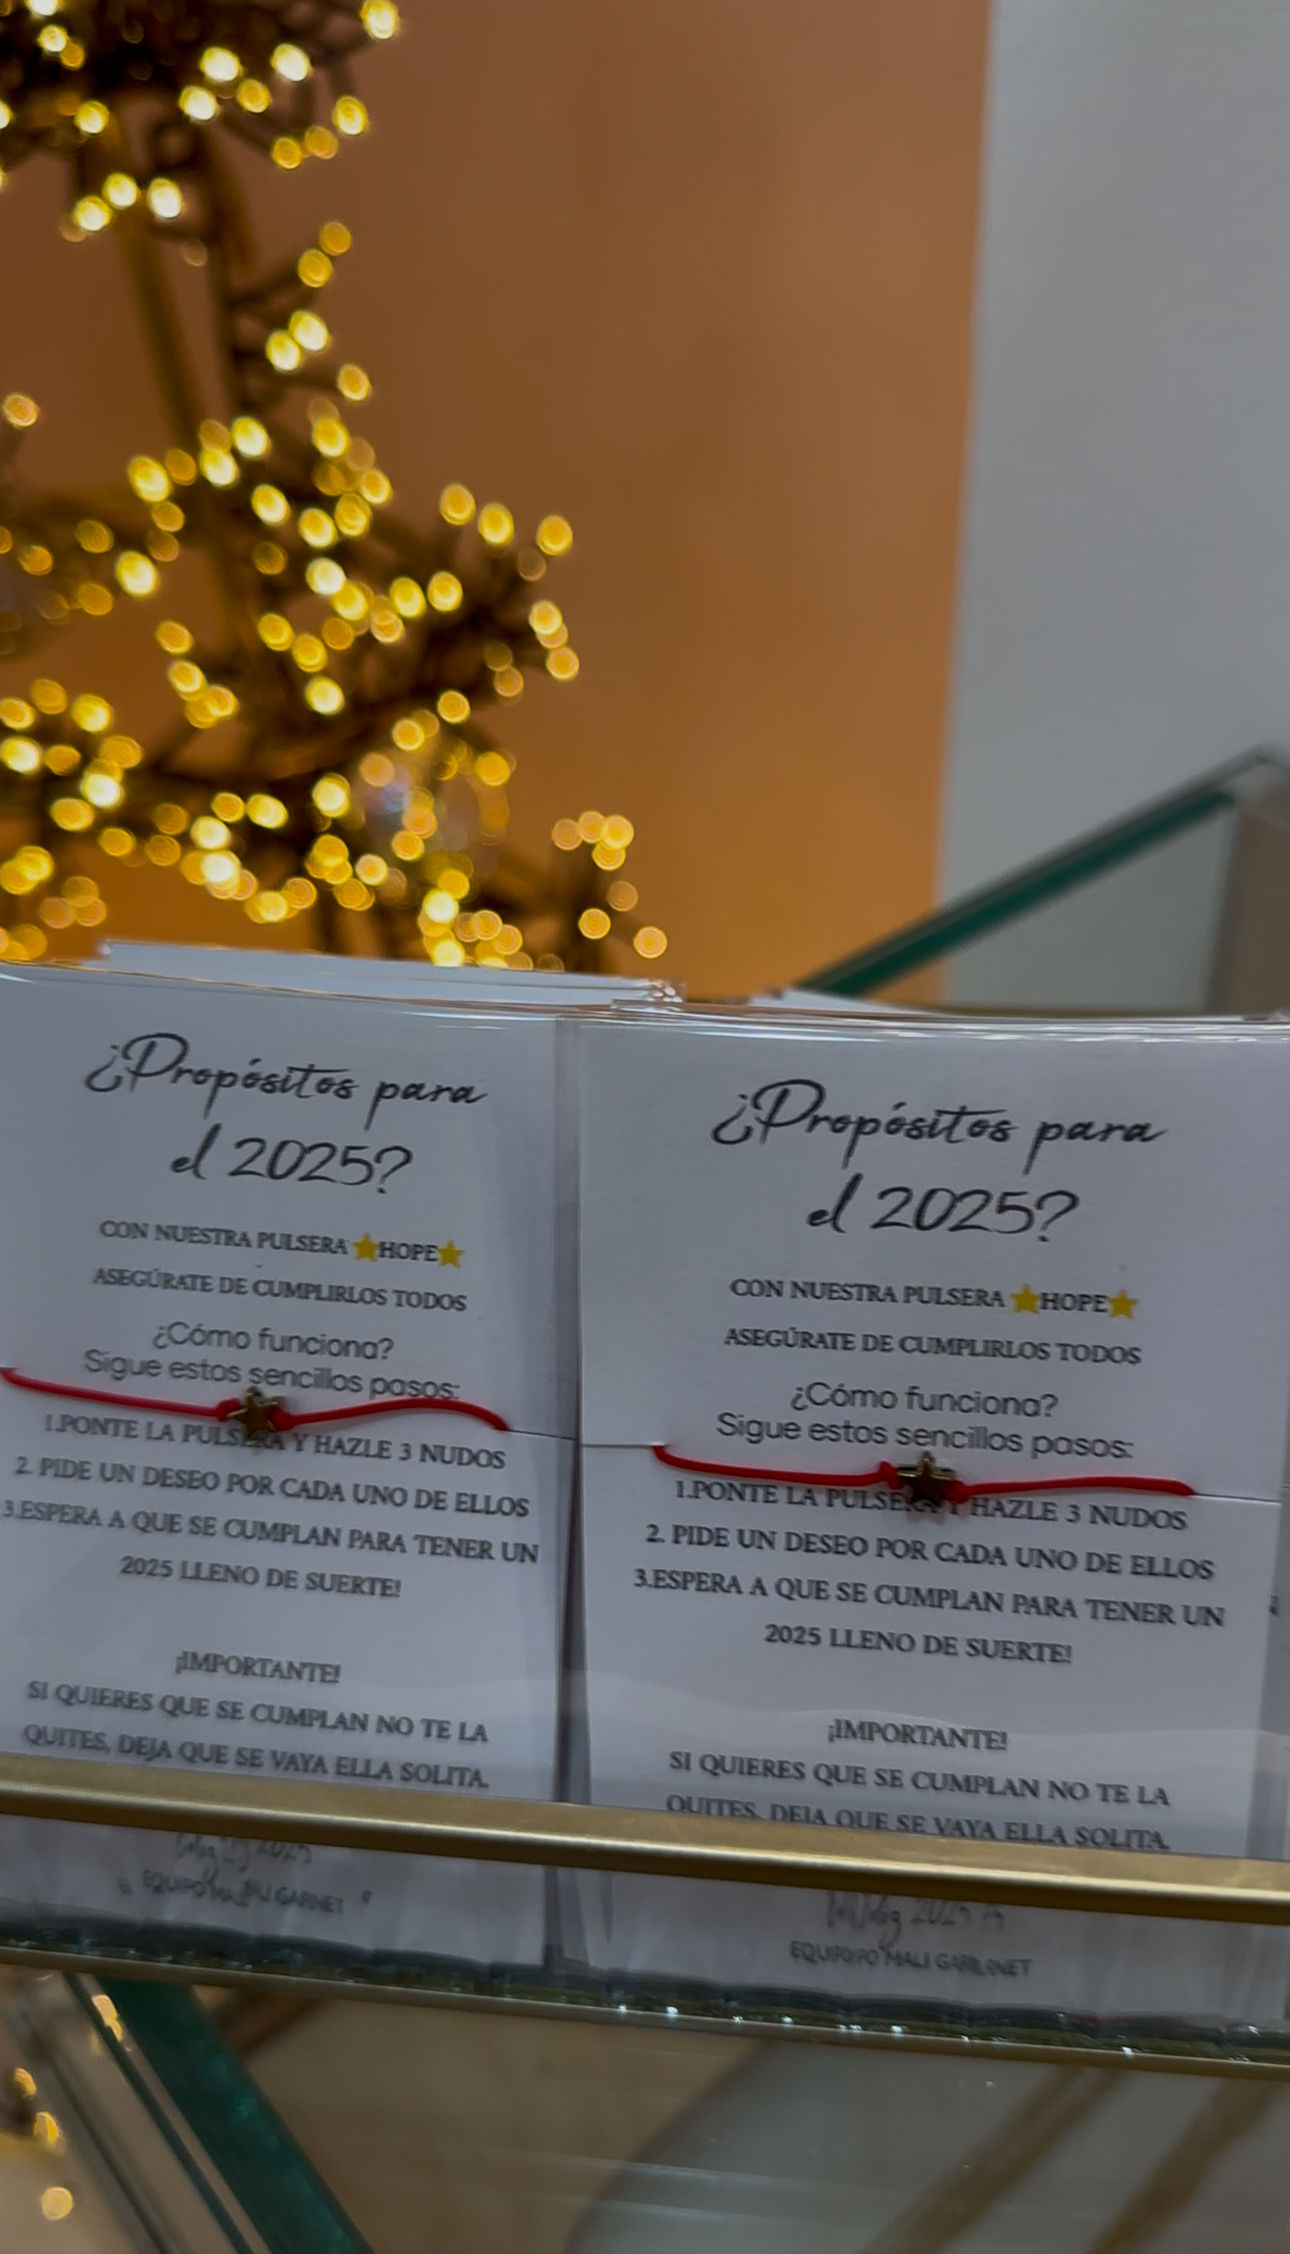 ¿Propósitos para
el 2025?
CON NUESTRA PULSERA ⭐HOPE⭐
ASEGÚRATE DE CUMPLIRLOS TODOS
¿Cómo funciona?
Sigue estos sencillos pasos:
1.PONTE LA PULSERA Y HAZLE 3 NUDOS
2. PIDE UN DESEO POR CADA UNO DE ELLOS
3.ESPERA A QUE SE CUMPLAN PARA TENER UN
2025 LLENO DE SUERTE!
¡IMPORTANTE!
SI QUIERES QUE SE CUMPLAN NO TE LA
QUITES, DEJA QUE SE VAYA ELLA SOLITA.
2025
EQUIPO MALI GARNET
¿Propósitos para
el 2025?
CON NUESTRA PULSERA ⭐HOPE⭐
ASEGÚRATE DE CUMPLIRLOS TODOS
¿Cómo funciona?
Sigue estos sencillos pasos:
1.PONTE LA PULSERA Y HAZLE 3 NUDOS
2. PIDE UN DESEO POR CADA UNO DE ELLOS
3.ESPERA A QUE SE CUMPLAN PARA TENER UN
2025 LLENO DE SUERTE!
¡IMPORTANTE!
SI QUIERES QUE SE CUMPLAN NO TE LA
QUITES, DEJA QUE SE VAYA ELLA SOLITA.
2025
EQUIPO MALI GARNET